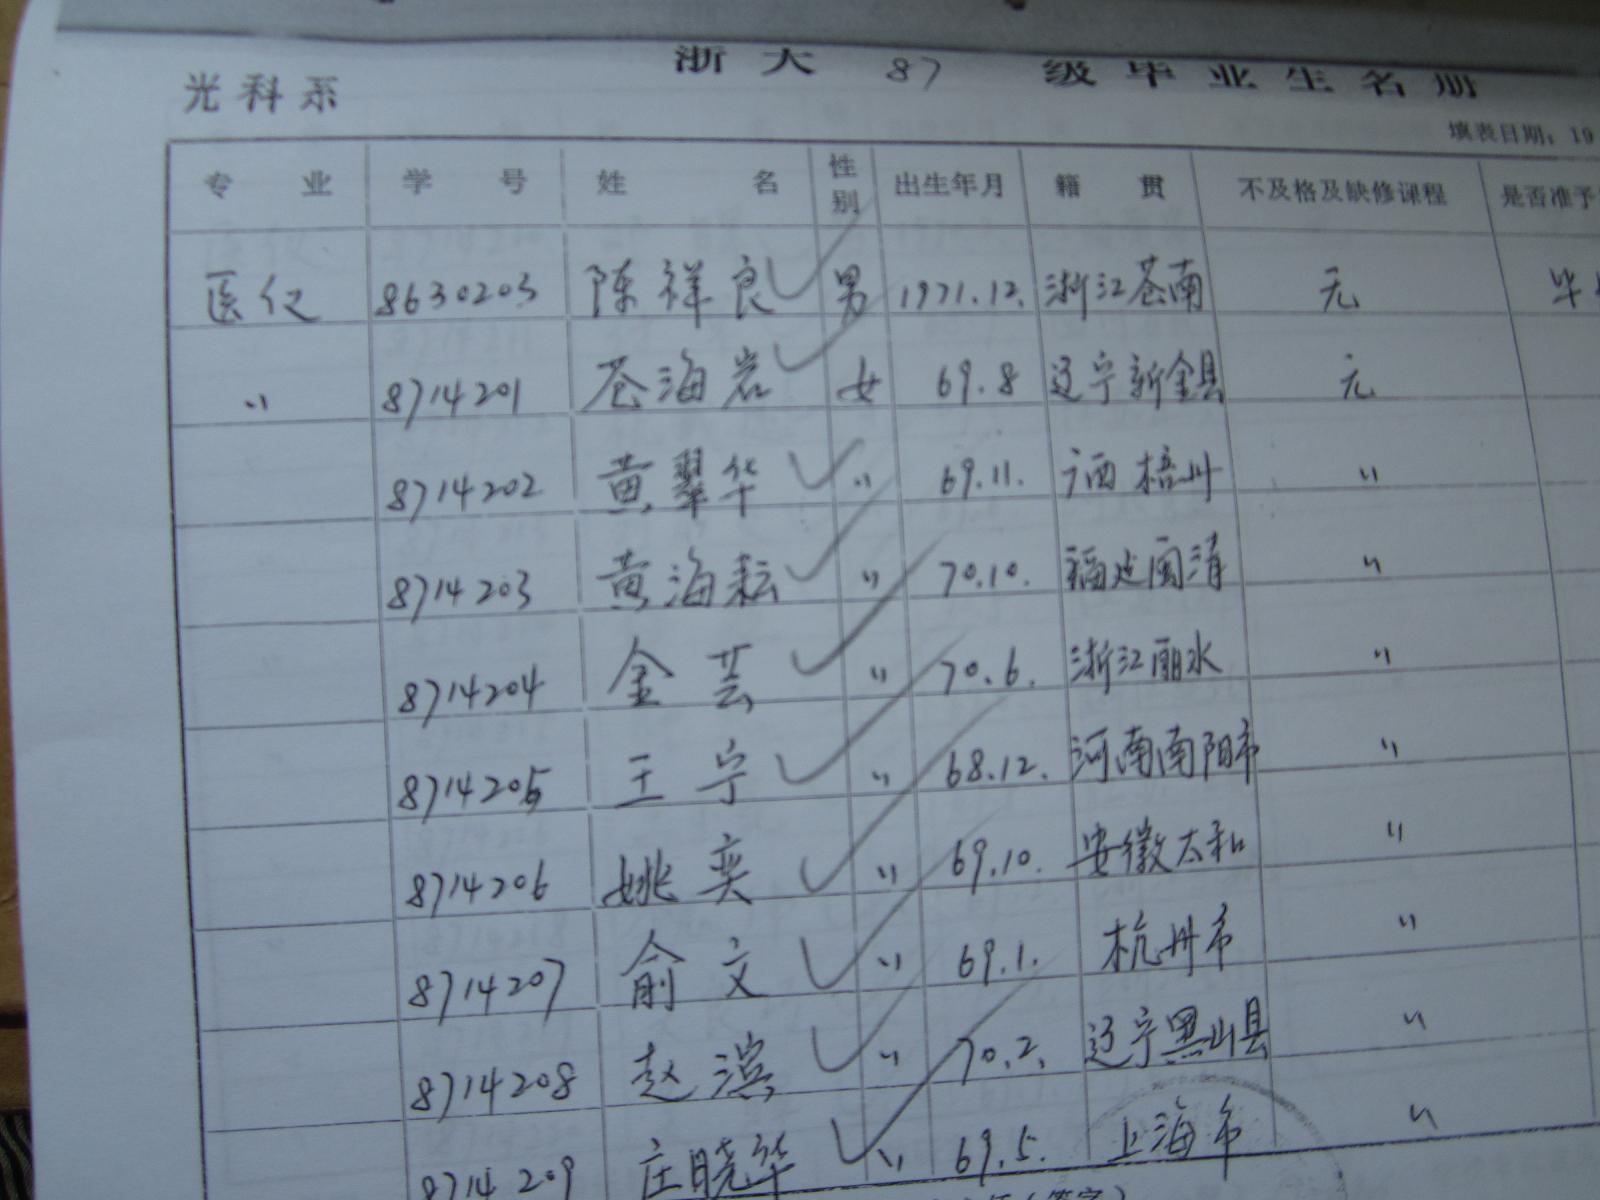 浙大 87 级毕业生名册
光科系
填表日期：19
专业 学号 姓名 性别 出生年月 籍贯 不及格及缺修课程 是否准予
医仪 8630203 陈祥良 男 1971.12. 浙江苍南 无 毕
〃 8714201 苍海岩 女 69.8 辽宁新金县 无
8714202 黄翠华 〃 69.11. 广西梧州 〃
8714203 黄海耘 〃 70.10. 福建闽清 〃
8714204 金芸 〃 70.6. 浙江丽水 〃
8714205 王宁 〃 68.12. 河南南阳市 〃
8714206 姚奕 〃 69.10. 安徽太和 〃
8714207 俞文 〃 69.1. 杭州市 〃
8714208 赵滨 〃 70.2. 辽宁黑山县 〃
8714209 庄晓华 〃 69.5. 上海市 〃
（签字）